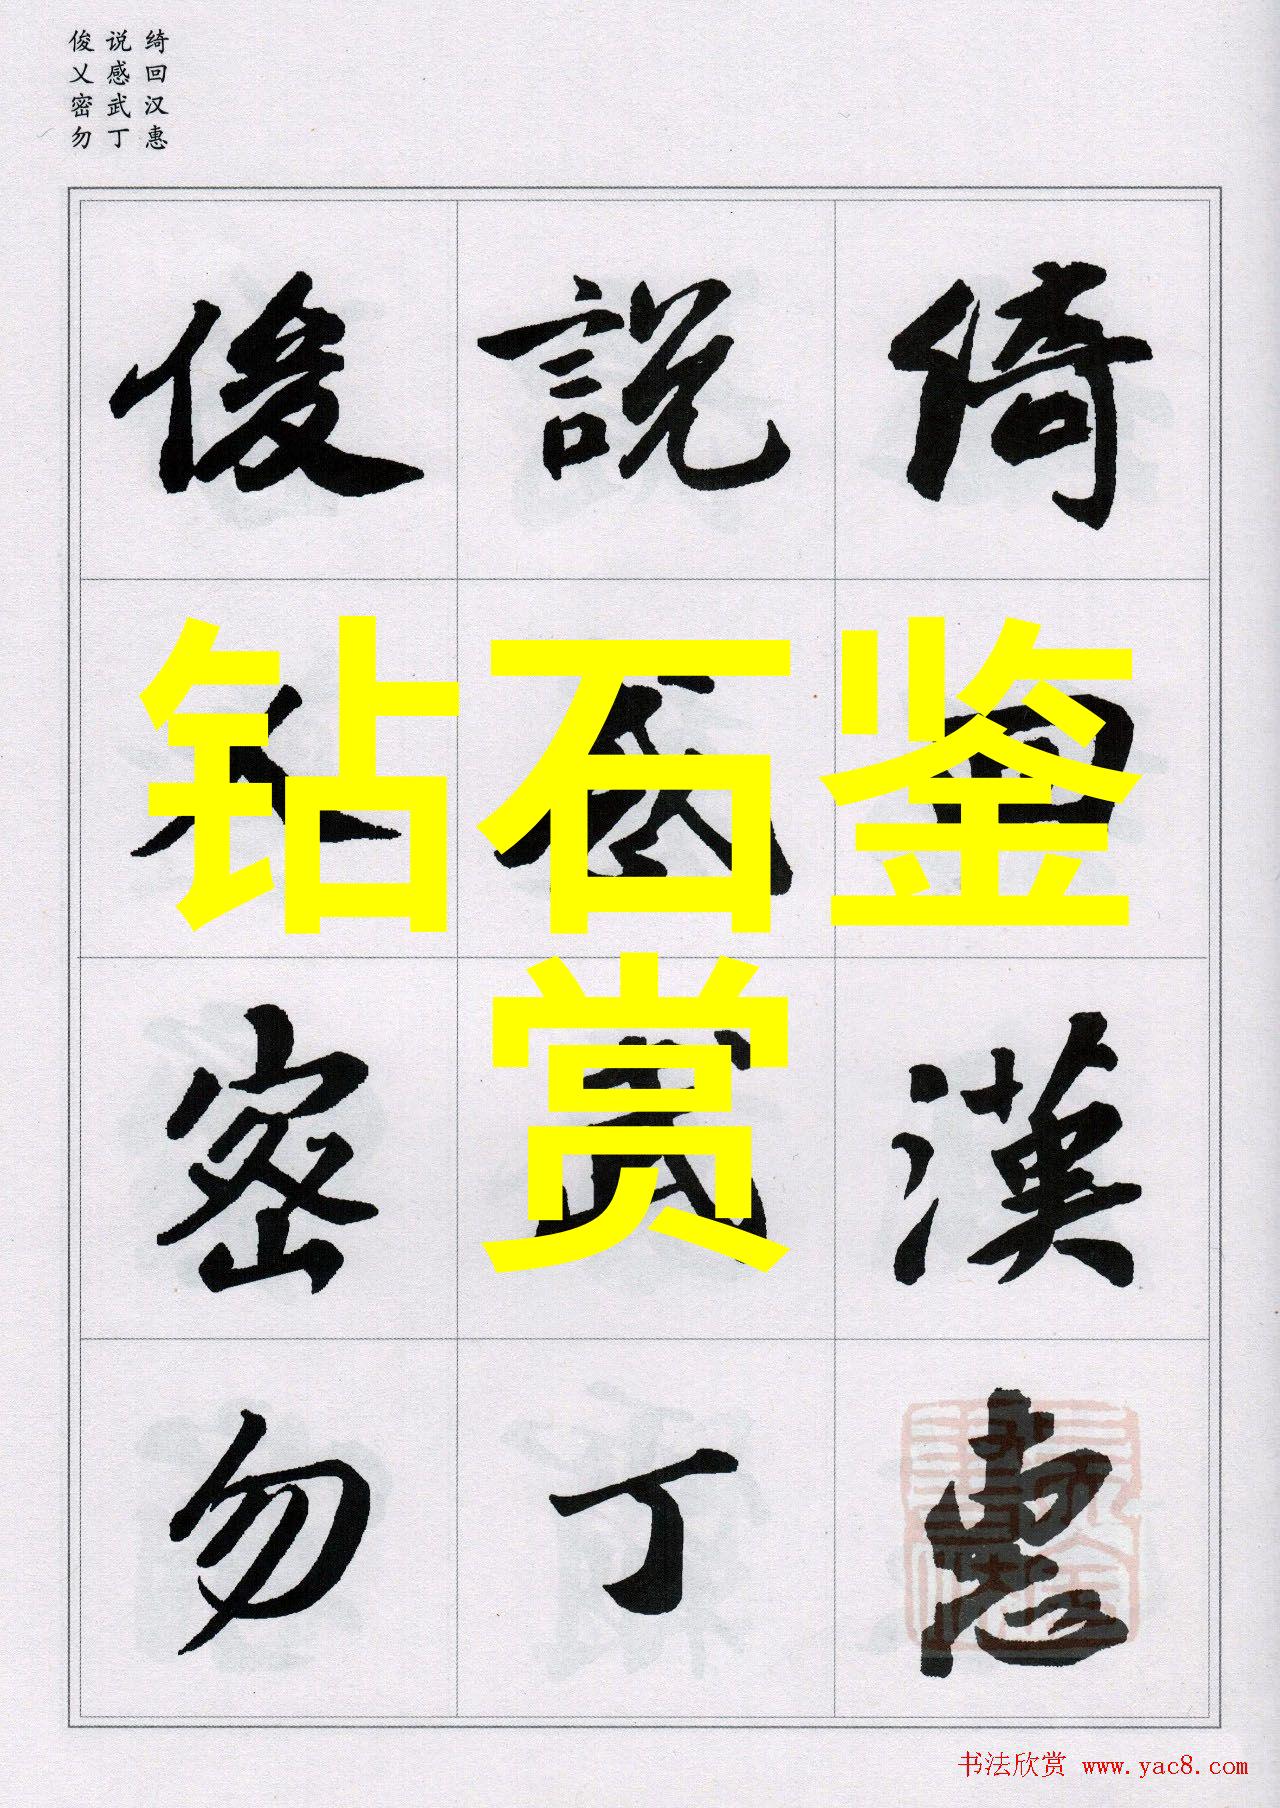 绮回汉惠
说感武丁
俊乂密勿
綺回漢惠
說感武丁
俊乂密勿
钻石鉴
赏
书法欣赏 www.yac8.com